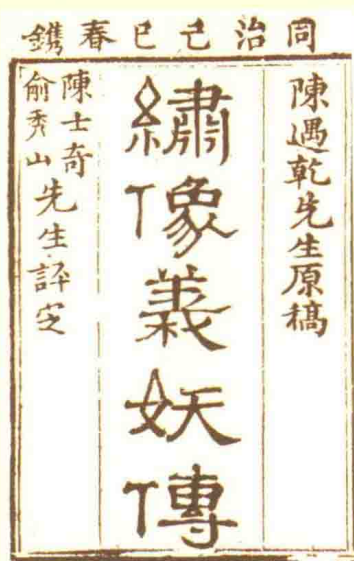 同治己巳春鐫
陳遇乾先生原稿
繡像義妖傳
陳士奇
俞秀山
先生評定